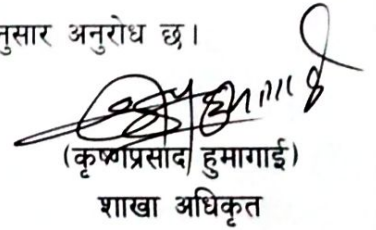 नुसार अनुरोध छ।
(कृष्णप्रसाद हुमागाई)
शाखा अधिकृत